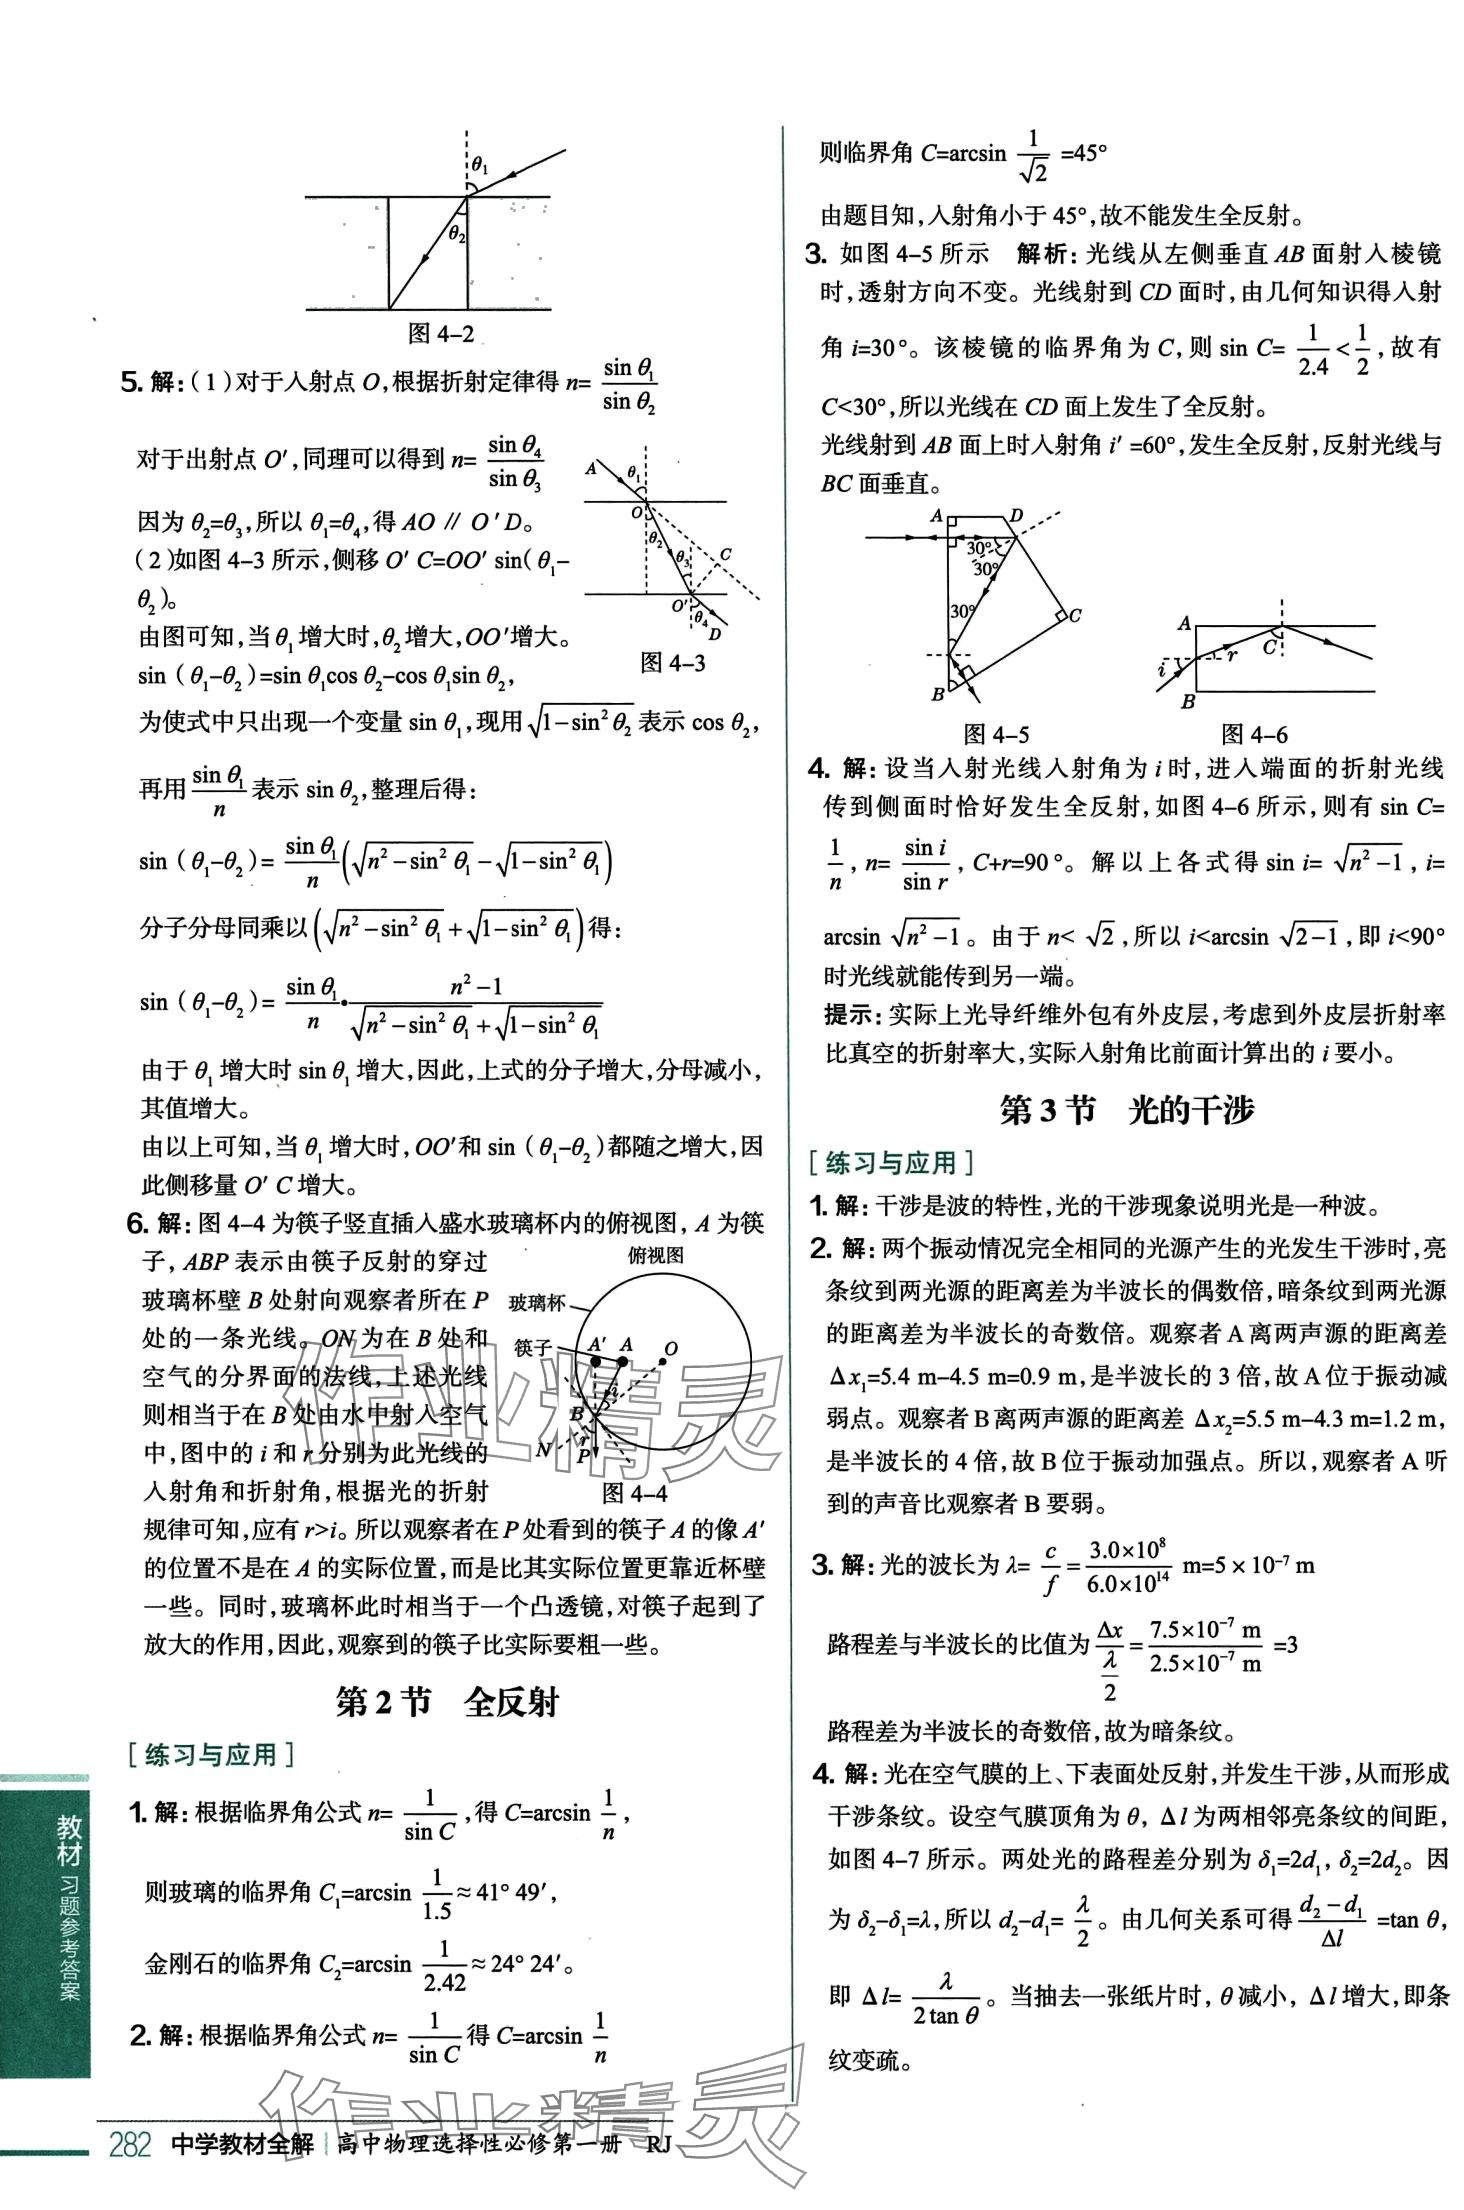 θ₁
θ₂
图 4-2
5. 解:(1)对于入射点 O,根据折射定律得 n= sin θ₁/sin θ₂
对于出射点 O′,同理可以得到 n= sin θ₄/sin θ₃
因为 θ₂=θ₃,所以 θ₁=θ₄,得 AO ∥ O′D。
(2)如图 4-3 所示,侧移 O′C=OO′ sin(θ₁-
θ₂)。
由图可知,当 θ₁ 增大时,θ₂ 增大,OO′增大。
A θ₁ O θ₂ θ₃ C O′ θ₄ D
图 4-3
sin (θ₁-θ₂)=sin θ₁cos θ₂-cos θ₁sin θ₂,
为使式中只出现一个变量 sin θ₁,现用 √(1-sin²θ₂) 表示 cos θ₂,
再用 sin θ₁/n 表示 sin θ₂,整理后得:
sin (θ₁-θ₂)= sin θ₁/n (√(n²-sin² θ₁)-√(1-sin² θ₁))
分子分母同乘以(√(n²-sin² θ₁)+√(1-sin² θ₁))得:
sin (θ₁-θ₂)= sin θ₁/n · (n²-1)/(√(n²-sin² θ₁)+√(1-sin² θ₁))
由于 θ₁ 增大时 sin θ₁ 增大,因此,上式的分子增大,分母减小,
其值增大。
由以上可知,当 θ₁ 增大时,OO′和 sin (θ₁-θ₂)都随之增大,因
此侧移量 O′C 增大。
6. 解:图 4-4 为筷子竖直插入盛水玻璃杯内的俯视图, A 为筷
子, ABP 表示由筷子反射的穿过
玻璃杯壁 B 处射向观察者所在 P
处的一条光线。ON 为在 B 处和
空气的分界面的法线,上述光线
则相当于在 B 处由水中射入空气
中,图中的 i 和 r 分别为此光线的
入射角和折射角,根据光的折射
俯视图
玻璃杯
筷子 A′ A O
B i
N r P
图 4-4
规律可知,应有 r>i。所以观察者在 P 处看到的筷子 A 的像 A′
的位置不是在 A 的实际位置,而是比其实际位置更靠近杯壁
一些。同时,玻璃杯此时相当于一个凸透镜,对筷子起到了
放大的作用,因此,观察到的筷子比实际要粗一些。
第 2 节 全反射
[练习与应用]
1. 解:根据临界角公式 n= 1/sin C ,得 C=arcsin 1/n ,
则玻璃的临界角 C₁=arcsin 1/1.5 ≈41° 49′,
金刚石的临界角 C₂=arcsin 1/2.42 ≈24° 24′。
2. 解:根据临界角公式 n= 1/sin C 得 C=arcsin 1/n
则临界角 C=arcsin 1/√2 =45°
由题目知,入射角小于 45°,故不能发生全反射。
3. 如图 4-5 所示 解析:光线从左侧垂直 AB 面射入棱镜
时,透射方向不变。光线射到 CD 面时,由几何知识得入射
角 i=30°。该棱镜的临界角为 C,则 sin C= 1/2.4 < 1/2 ,故有
C<30°,所以光线在 CD 面上发生了全反射。
光线射到 AB 面上时入射角 i′ =60°,发生全反射,反射光线与
BC 面垂直。
A D 30° 30° 30° C B
图 4-5
A C r i B
图 4-6
4. 解:设当入射光线入射角为 i 时,进入端面的折射光线
传到侧面时恰好发生全反射,如图 4-6 所示,则有 sin C=
1/n , n= sin i/sin r , C+r=90°。解以上各式得 sin i= √(n²-1) , i=
arcsin √(n²-1) 。由于 n< √2 ,所以 i<arcsin √(2-1) ,即 i<90°
时光线就能传到另一端。
提示:实际上光导纤维外包有外皮层,考虑到外皮层折射率
比真空的折射率大,实际入射角比前面计算出的 i 要小。
第 3 节 光的干涉
[练习与应用]
1. 解:干涉是波的特性,光的干涉现象说明光是一种波。
2. 解:两个振动情况完全相同的光源产生的光发生干涉时,亮
条纹到两光源的距离差为半波长的偶数倍,暗条纹到两光源
的距离差为半波长的奇数倍。观察者 A 离两声源的距离差
Δx₁=5.4 m-4.5 m=0.9 m,是半波长的 3 倍,故 A 位于振动减
弱点。观察者 B 离两声源的距离差 Δx₂=5.5 m-4.3 m=1.2 m,
是半波长的 4 倍,故 B 位于振动加强点。所以,观察者 A 听
到的声音比观察者 B 要弱。
3. 解:光的波长为 λ= c/f = 3.0×10⁸/6.0×10¹⁴ m=5 × 10⁻⁷ m
路程差与半波长的比值为 Δx/(λ/2) = 7.5×10⁻⁷ m/2.5×10⁻⁷ m =3
路程差为半波长的奇数倍,故为暗条纹。
4. 解:光在空气膜的上、下表面处反射,并发生干涉,从而形成
干涉条纹。设空气膜顶角为 θ, Δl 为两相邻亮条纹的间距,
如图 4-7 所示。两处光的路程差分别为 δ₁=2d₁, δ₂=2d₂。因
为 δ₂-δ₁=λ,所以 d₂-d₁= λ/2 。由几何关系可得 (d₂-d₁)/Δl =tan θ,
即 Δl= λ/(2 tan θ) 。当抽去一张纸片时, θ 减小, Δl 增大,即条
纹变疏。
教材 习题参考答案
282 中学教材全解 高中物理选择性必修第一册 RJ
作业精灵
作业精灵